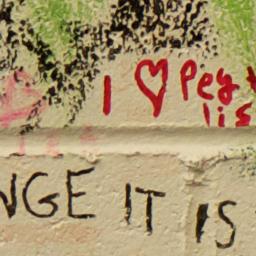 I ♡ Pey
lis
NGE IT IS